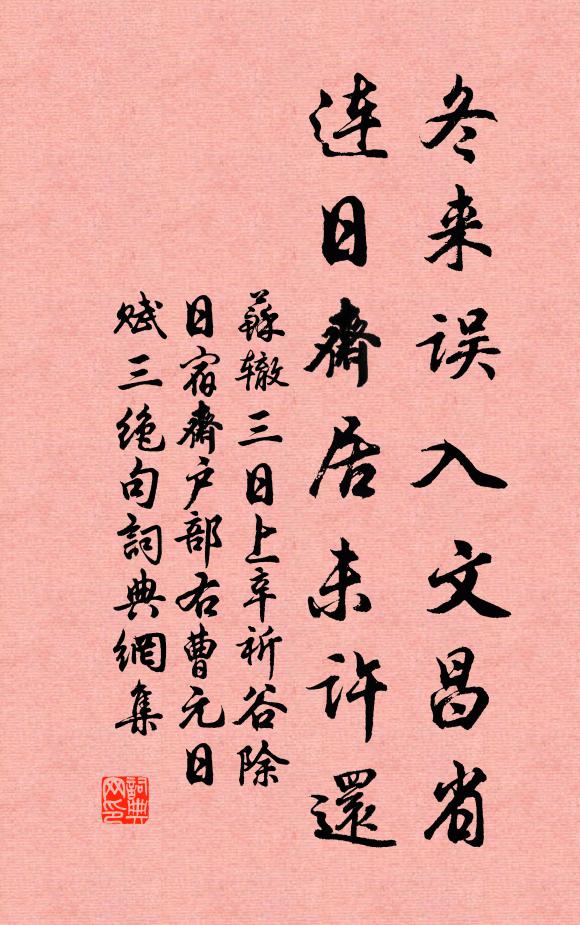 冬来误入文昌省
连日斋居未许還
蘇辙三日上辛祈谷除
日宿齋户部右曹元日
赋三绝句詞典網集
詞典网印